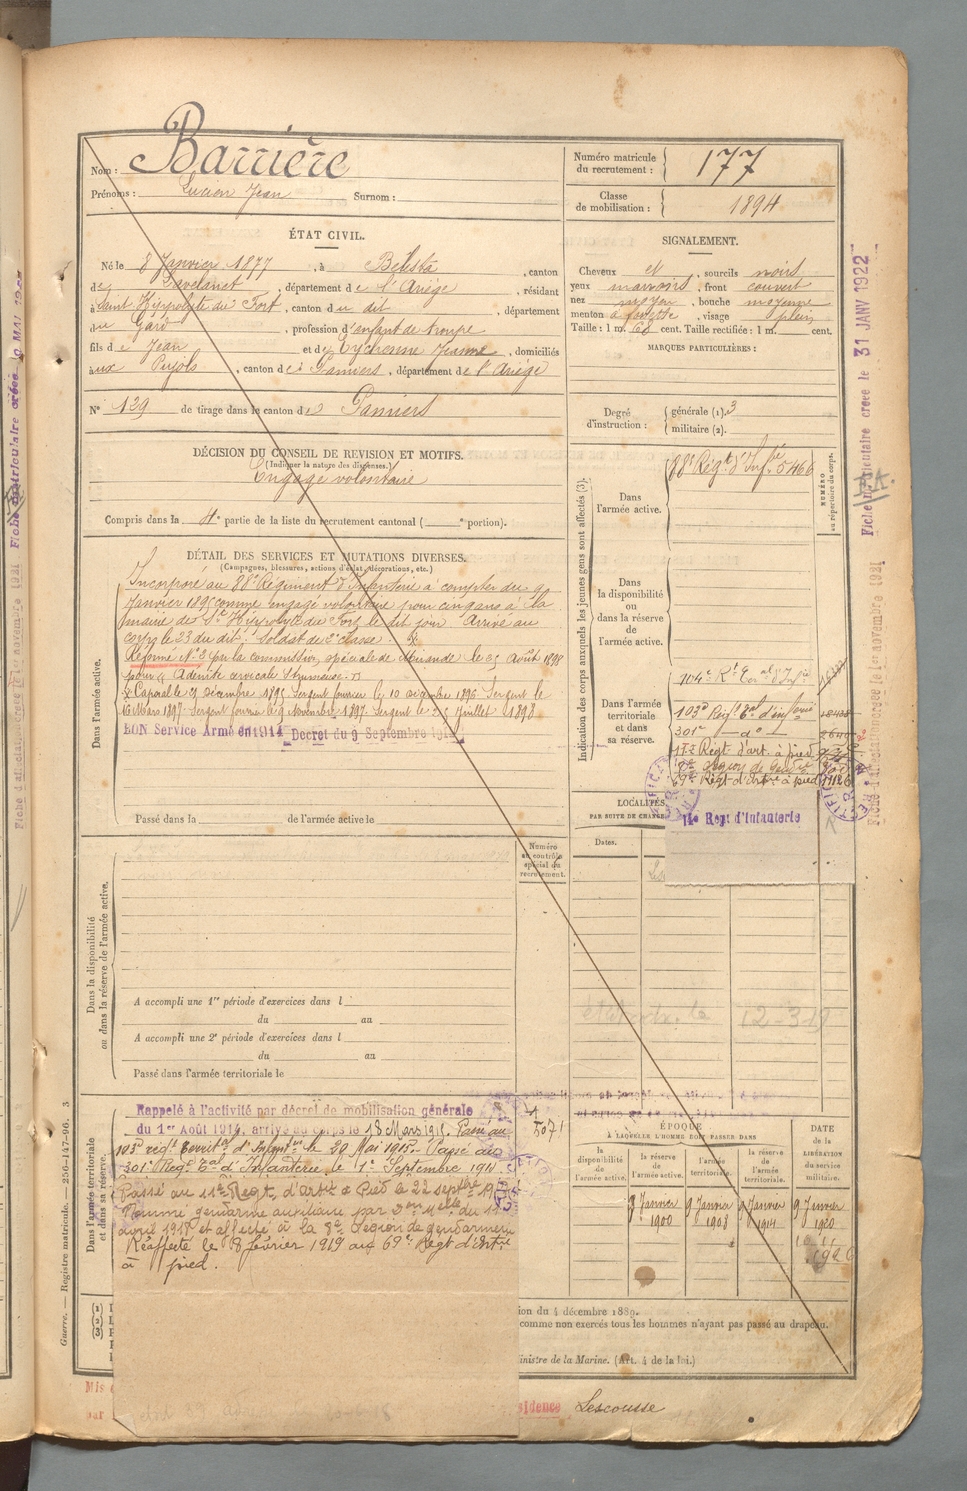 Nom : Barrière
Prénoms : Lucien Jean Surnom :
Numéro matricule du recrutement : 177
Classe de mobilisation : 1894
ÉTAT CIVIL.
Né le 8 Janvier 1877, à Bélesta, canton
de Lavelanet, département de l'Ariège, résidant
à Saint Hippolyte du Fort, canton du dit, département
du Gard, profession d'enfant de troupe
fils de Jean et de Eychenne Jeanne, domiciliés
aux Pujols, canton de Pamiers, département de l'Ariège
N° 129 de tirage dans le canton de Pamiers
SIGNALEMENT.
Cheveux et, sourcils noirs
yeux marrons, front couvert
nez moyen, bouche moyenne
menton à fossette, visage plein
Taille : 1 m. cent. Taille rectifiée : 1 m. cent.
MARQUES PARTICULIÈRES :
Degré d'instruction : générale (1). 3
militaire (2).
DÉCISION DU CONSEIL DE REVISION ET MOTIFS.
(Indiquer la nature des dispenses.)
Engagé volontaire
Compris dans la 4e partie de la liste du recrutement cantonal ( e portion).
DÉTAIL DES SERVICES ET MUTATIONS DIVERSES.
(Campagnes, blessures, actions d'éclat, décorations, etc.)
Dans l'armée active.
Incorporé au 88e Régiment d'Infanterie à compter du 9
Janvier 1895 comme engagé volontaire pour cinq ans à la
mairie de St Hippolyte du Fort le dit jour. Arrivé au
corps le 23 du dit, Soldat de 2e classe.
Réformé N° 2 par la commission spéciale de Mirande le 25 Août 1898
pour " Adénite cervicale
Caporal le 25 Décembre 1895 Sergent fourrier le 10 Décembre 1896 Sergent le
16 Mars 1897 Sergent fourrier le 9 Novembre 1897. Sergent le Juillet 1898
BON Service Armé en 1914 Décret du 9 Septembre
Passé dans la de l'armée active le
Indication des corps auxquels les jeunes gens sont affectés (3).
NUMÉRO au répertoire du corps.
Dans l'armée active.
88e Régt d'Infrie 5466
Dans la disponibilité ou dans la réserve de l'armée active.
Dans l'armée territoriale et dans sa réserve.
104e Rt Ter al d'Infie
103e Régt Tal d'infanie
301e — do —
11e Régt d'art. à pied
69e Régt d'artrie à pied
14e Regt d'Infanterie
LOCALITÉS
PAR SUITE DE CHANGE
Dates.
Numéro au contrôle spécial du recrutement.
Dans la disponibilité ou dans la réserve de l'armée active.
A accompli une 1re période d'exercices dans l
du au
A accompli une 2e période d'exercices dans l
du au
Passé dans l'armée territoriale le
12-3-19
Dans l'armée territoriale et dans sa réserve.
Rappelé à l'activité par décret de mobilisation générale
du 1er Août 1914, arrivé au corps le 18 Mars 1915. Passé au
103e régt Territal d'Infantrie le 20 Mai 1915. Passé au
301e Régt Tal d'Infanterie le 1er Septembre 191
Passé au 11e Regt d'Artrie à Pied le 22 septbre 19
Nommé gendarme auxiliaire par Don Melle du 1
avril 1918 et affecté à la 8e Légion de gendarmerie
Réaffecté le 8 février 1919 au 69e Regt d'Artrie
à pied.
5071
ÉPOQUE
À LAQUELLE L'HOMME DOIT PASSER DANS
la disponibilité.
la réserve de l'armée active.
l'armée territoriale.
la réserve de l'armée territoriale.
DATE de la LIBÉRATION du service militaire.
9 Janvier 1900
9 Janvier 1908
9 Janvier 1914
9 Janvier 1920
ion du 4 décembre 1889.
comme non exercés tous les hommes n'ayant pas passé au drapeau.
inistre de la Marine. (Art. 4 de la loi.)
Mis
par
sidence Lescousse
Guerre. — Registre matricule. — 256-147-96. 3
Fiche matriculaire créée le 31 JANV 1922
Fiche d'affectation créée le 1er novembre 1921